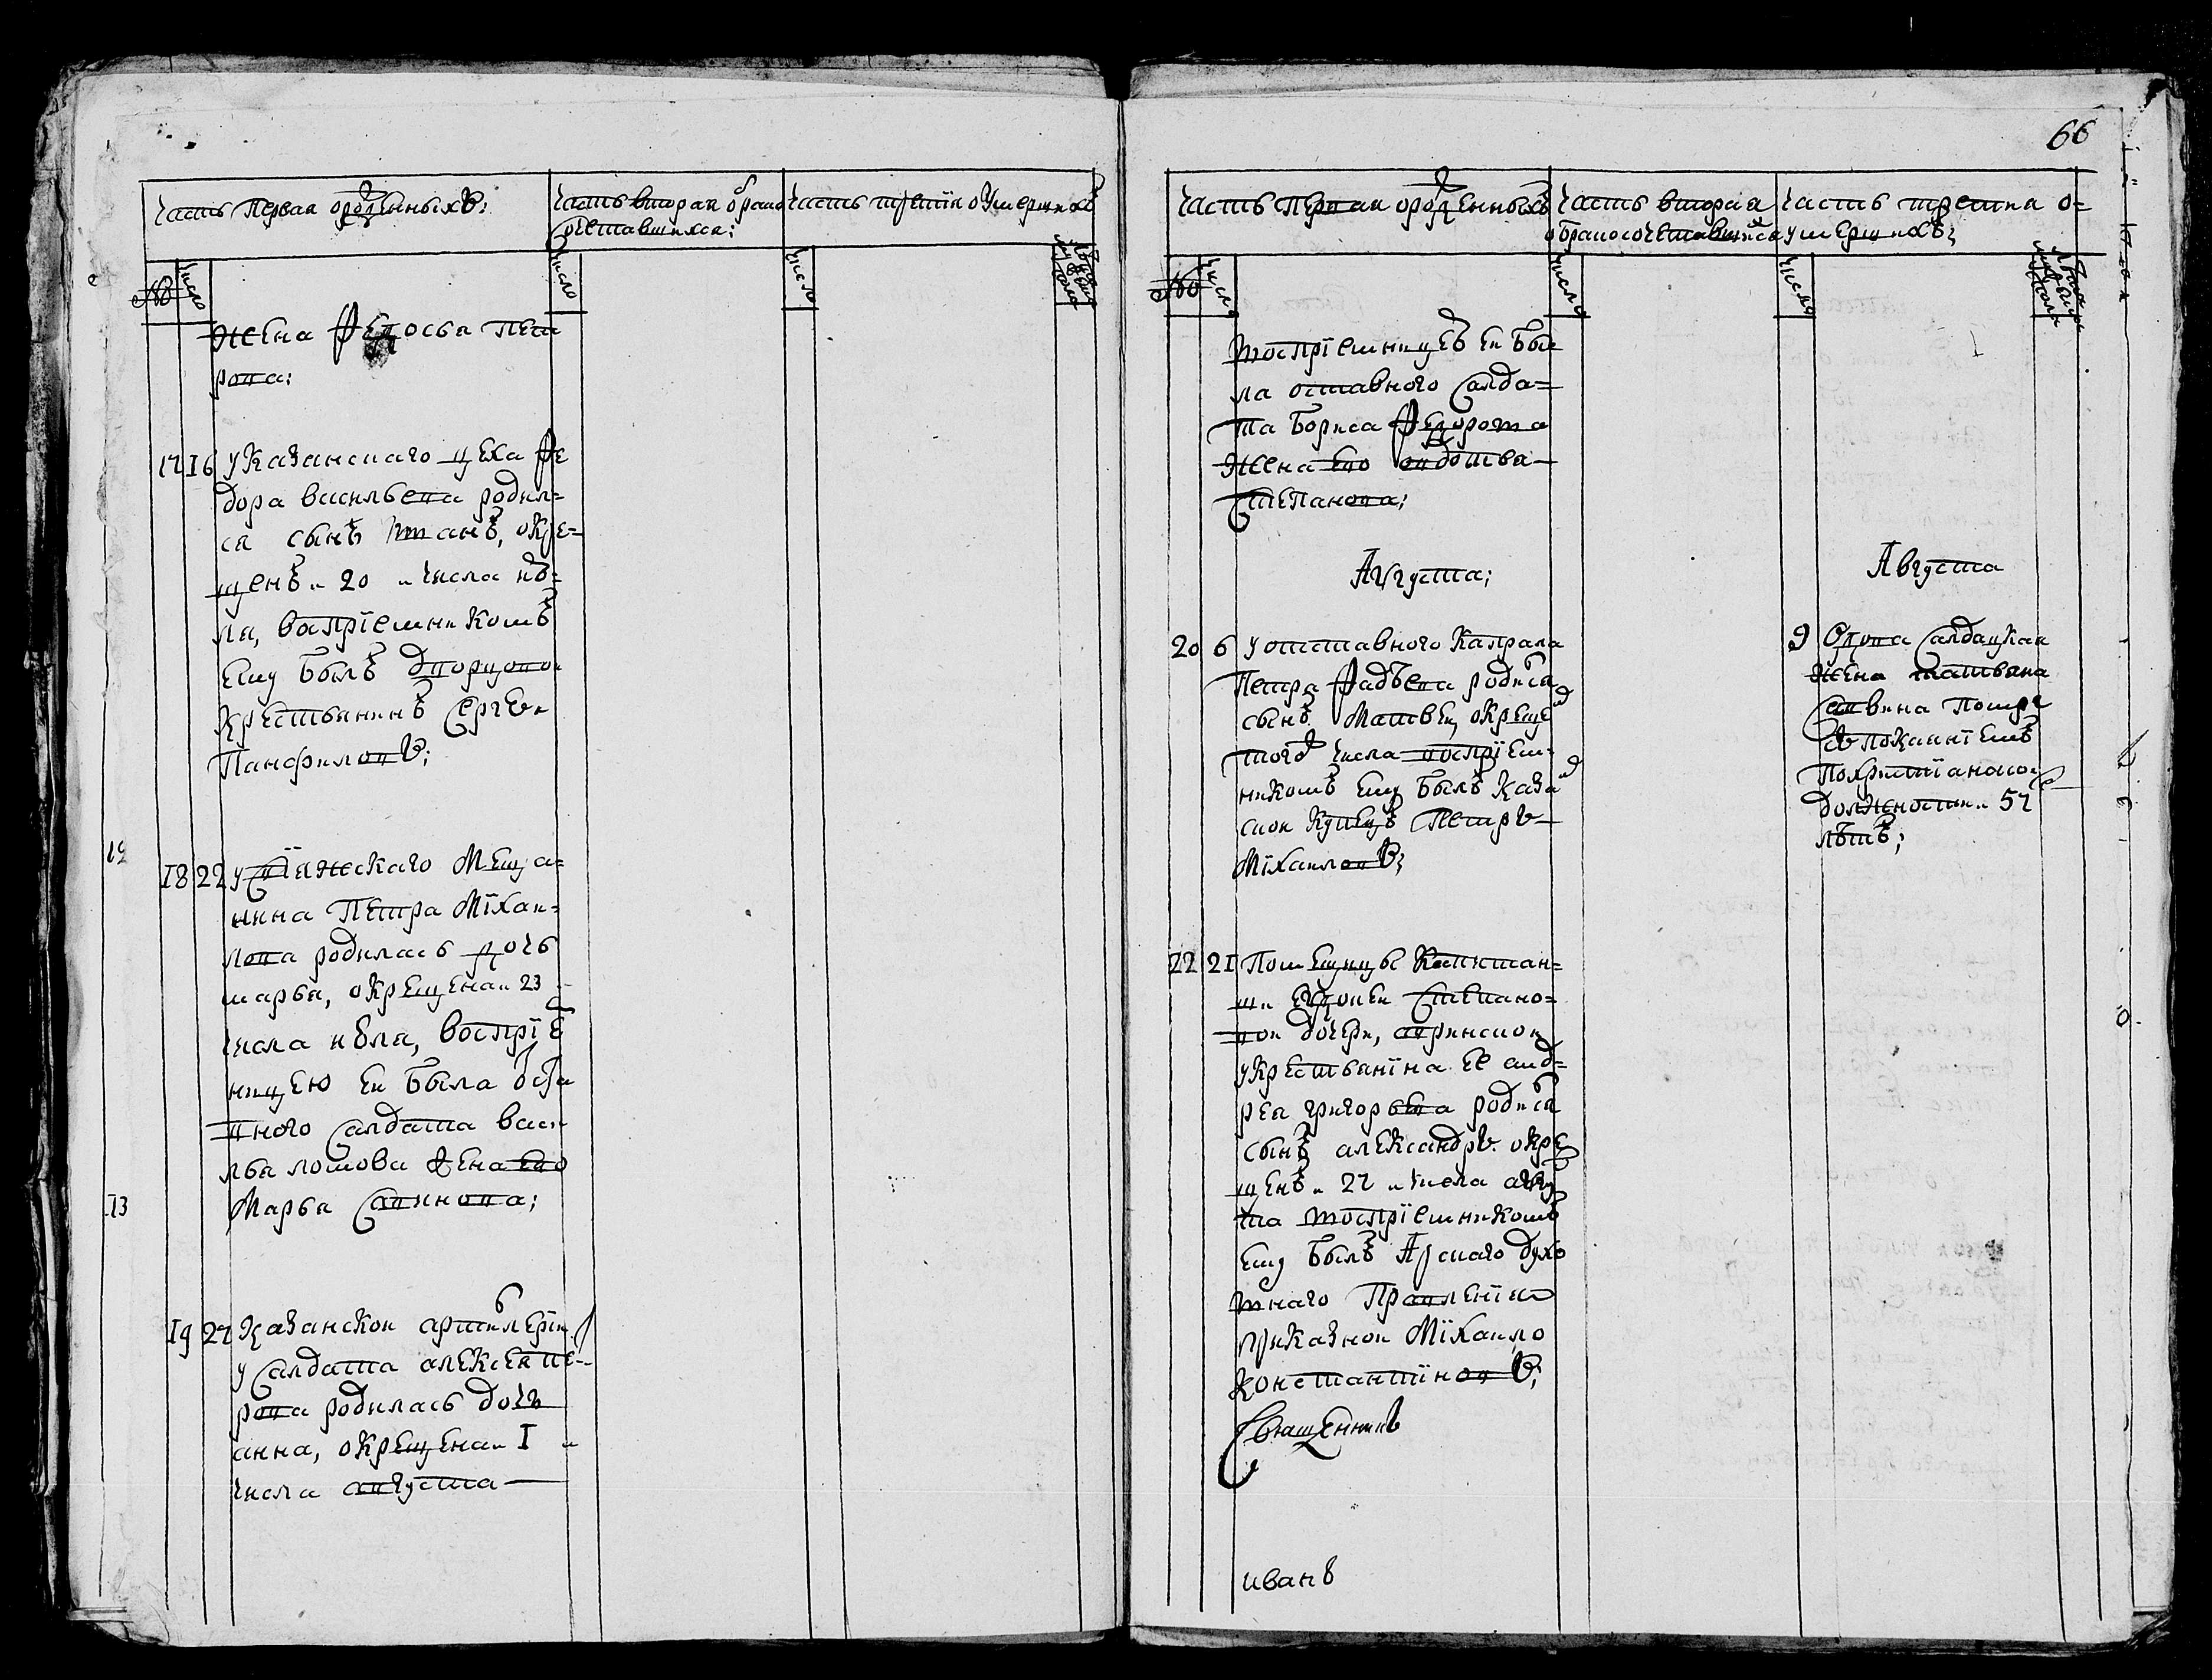 66
Часть первая ороженныхъ:
Часть вторая обрако
сочетавшихся:
Часть третїя оумершихъ
№
число
число
число
жена Федосья пет
рова:
17 16 у казанского цеха фе
дора васильева родил=
ся сынъ иванъ, окре=
щенъ 20 числа їю=
ля, воспрїемникомъ
ему былъ дворцовой
крестьянинъ Сергеи
Панфиловъ;
18 22 у Свїяжскаго мещa=
нина Петра Мїхаи=
лова родилась дочь
марья, окрещена 23
числа июля, воспрїе
ницею еи была оста
вного Салдата васи
лья ломова жена ево
Марья Саввнова;
19 27 казанскои артилерїи
у Салдата алексея пе=
рова родилась дочь
анна, окрещена 1
числа августа
Часть первая ороженныхъ
Часть вторая
обракосочетавшихся
Часть третия о=
умершихъ;
№
число
число
число
воспрїемницеи еи бы
ла отставного Салда=
та Бориса Федорова
жена ево авдотья
Степанова;
Августа;
20 6 у отставного капрала
Петра Фадѣева родися
сынъ Матвеи, окрещенъ
того числа воспрїем=
никомъ ему былъ каза
нскои купецъ Петръ
Мїхаиловъ;
22 21 Помещицы капитан=
ши Евдокеи Степано=
вои дочери,
у крестьянїна ее анд=
рея григорьева родися
сынъ александръ. окре
щенъ 22 числа авгу
ста воспрїемникомъ
ему былъ Арскаго духо
внаго Правленїя
приказнои Мїхаило
Константїновъ;
Священникъ
иванъ
Августа
9 Вдова Салдацкая
жена
Саввина погре
бъ покаянїемъ
похристїанскои
должности 57
лѣтъ;